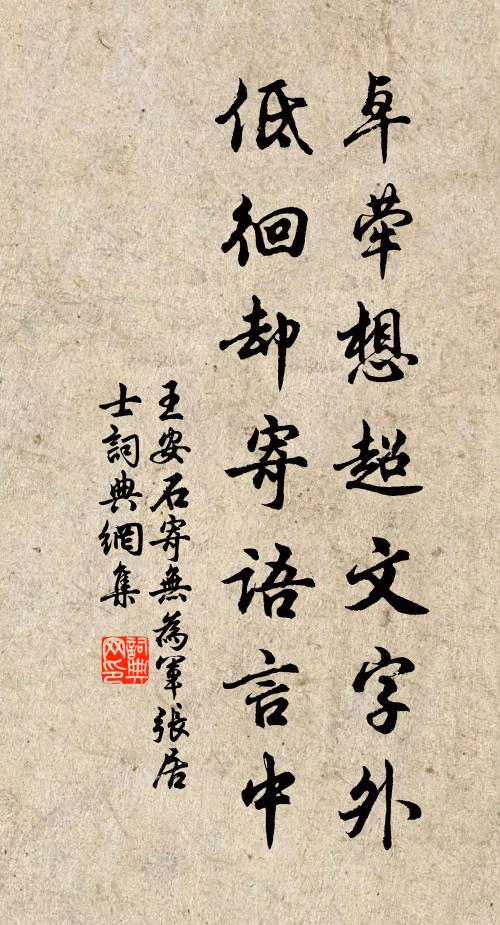 卓犖想超文字外
低徊却寄語言中
王安石寄無為軍張居
士詞典網集
詞典網印